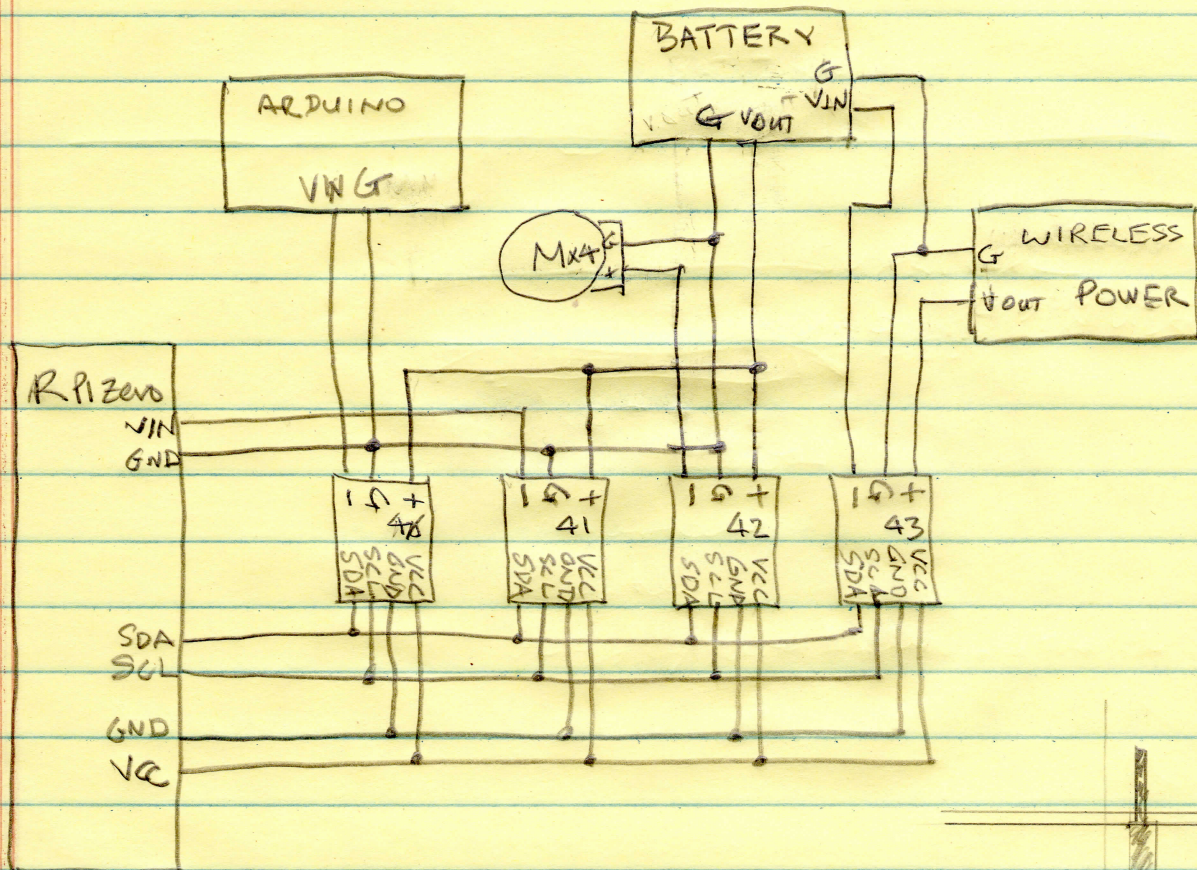 BATTERY
G
VIN
G VOUT
ARDUINO
VIN G
Mx4
G
+
WIRELESS
POWER
G
VOUT
RPi Zero
VIN
GND
- G +
40
SDA
SCL
GND
VCC
- G +
41
SDA
SCL
GND
VCC
- G +
42
SDA
SCL
GND
VCC
- G +
43
SDA
SCA
GND
VCC
SDA
SCL
GND
VCC